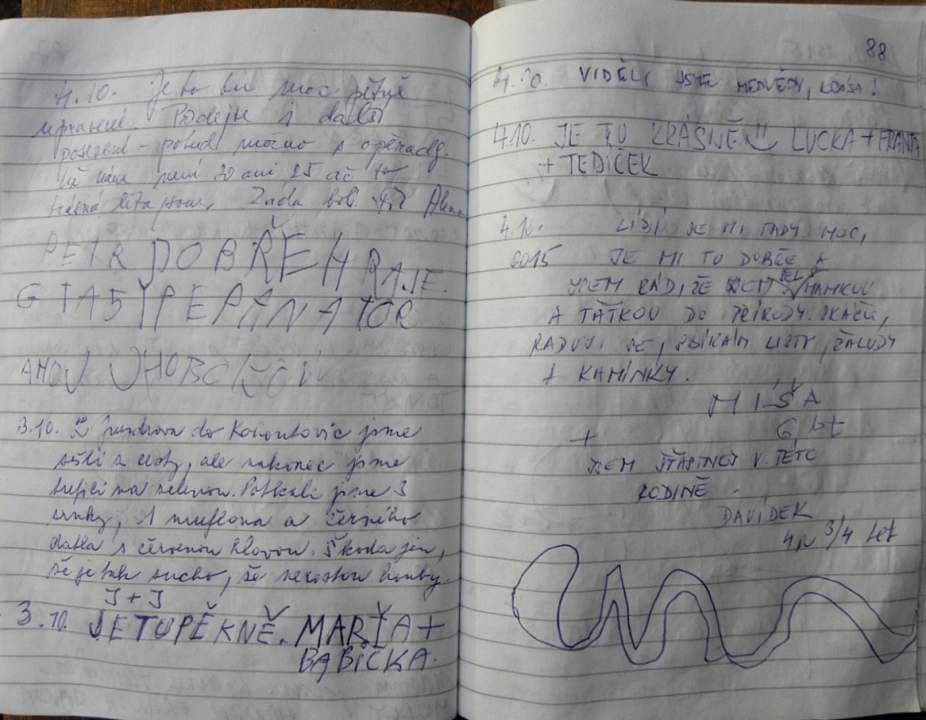 4.10. Je to tu moc pěkně
upravené. Přidejte i další
posezení - pokud možno s opěradly.
Už nám není 20 ani 25 ač
krásná léta jsou, Záda bolí.
PETR DOBŘE HRAJE
GTA5 PEPANATOR
AHOJ
3.10. Z do Kohoutovic jsme
sešli z cesty, ale nakonec jsme
trefili na zelenou. Potkali jsme 3
srnky, 1 muflona a černého
datla s červenou hlavou. Škoda jen,
že je tak sucho, že nerostou houby.
J + J
3.10. JE TU PĚKNĚ. MARŤA +
BABIČKA.
88
4.10. VIDĚLI JSME MEDVĚDY, KRÁSA!
4.10. JE TU KRÁSNĚ LUCKA + FRANTA
+ TEDÍČEK
4.10. LÍBÍ SE MI TADY MOC,
2015 JE MI TU DOBŘE A
JSEM RÁD, ŽE JSEM ŠEL S MAMKOU
A TAŤKOU DO PŘÍRODY. SKÁČU,
RADUJI SE, SBÍRÁM LISTY, ŽALUDY
A KAMÍNKY.
MÍŠA
6 let
+
JSEM ŠŤASTNEJ V TÉTO
RODINĚ.
DAVÍDEK
4 a 3/4 let